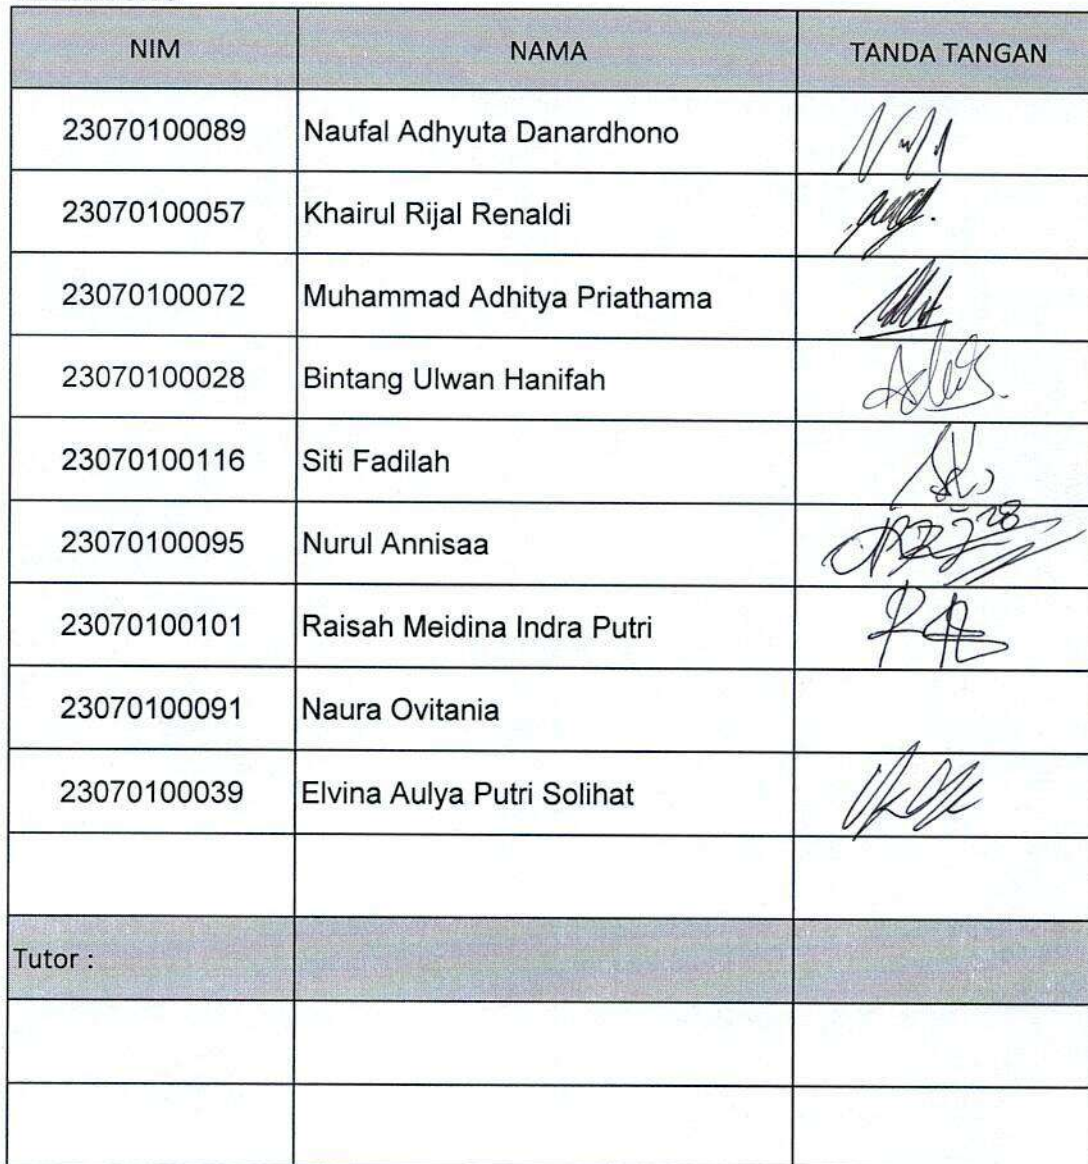 NIM NAMA TANDA TANGAN
23070100089 Naufal Adhyuta Danardhono
23070100057 Khairul Rijal Renaldi
23070100072 Muhammad Adhitya Priathama
23070100028 Bintang Ulwan Hanifah
23070100116 Siti Fadilah
23070100095 Nurul Annisaa
23070100101 Raisah Meidina Indra Putri
23070100091 Naura Ovitania
23070100039 Elvina Aulya Putri Solihat
Tutor :